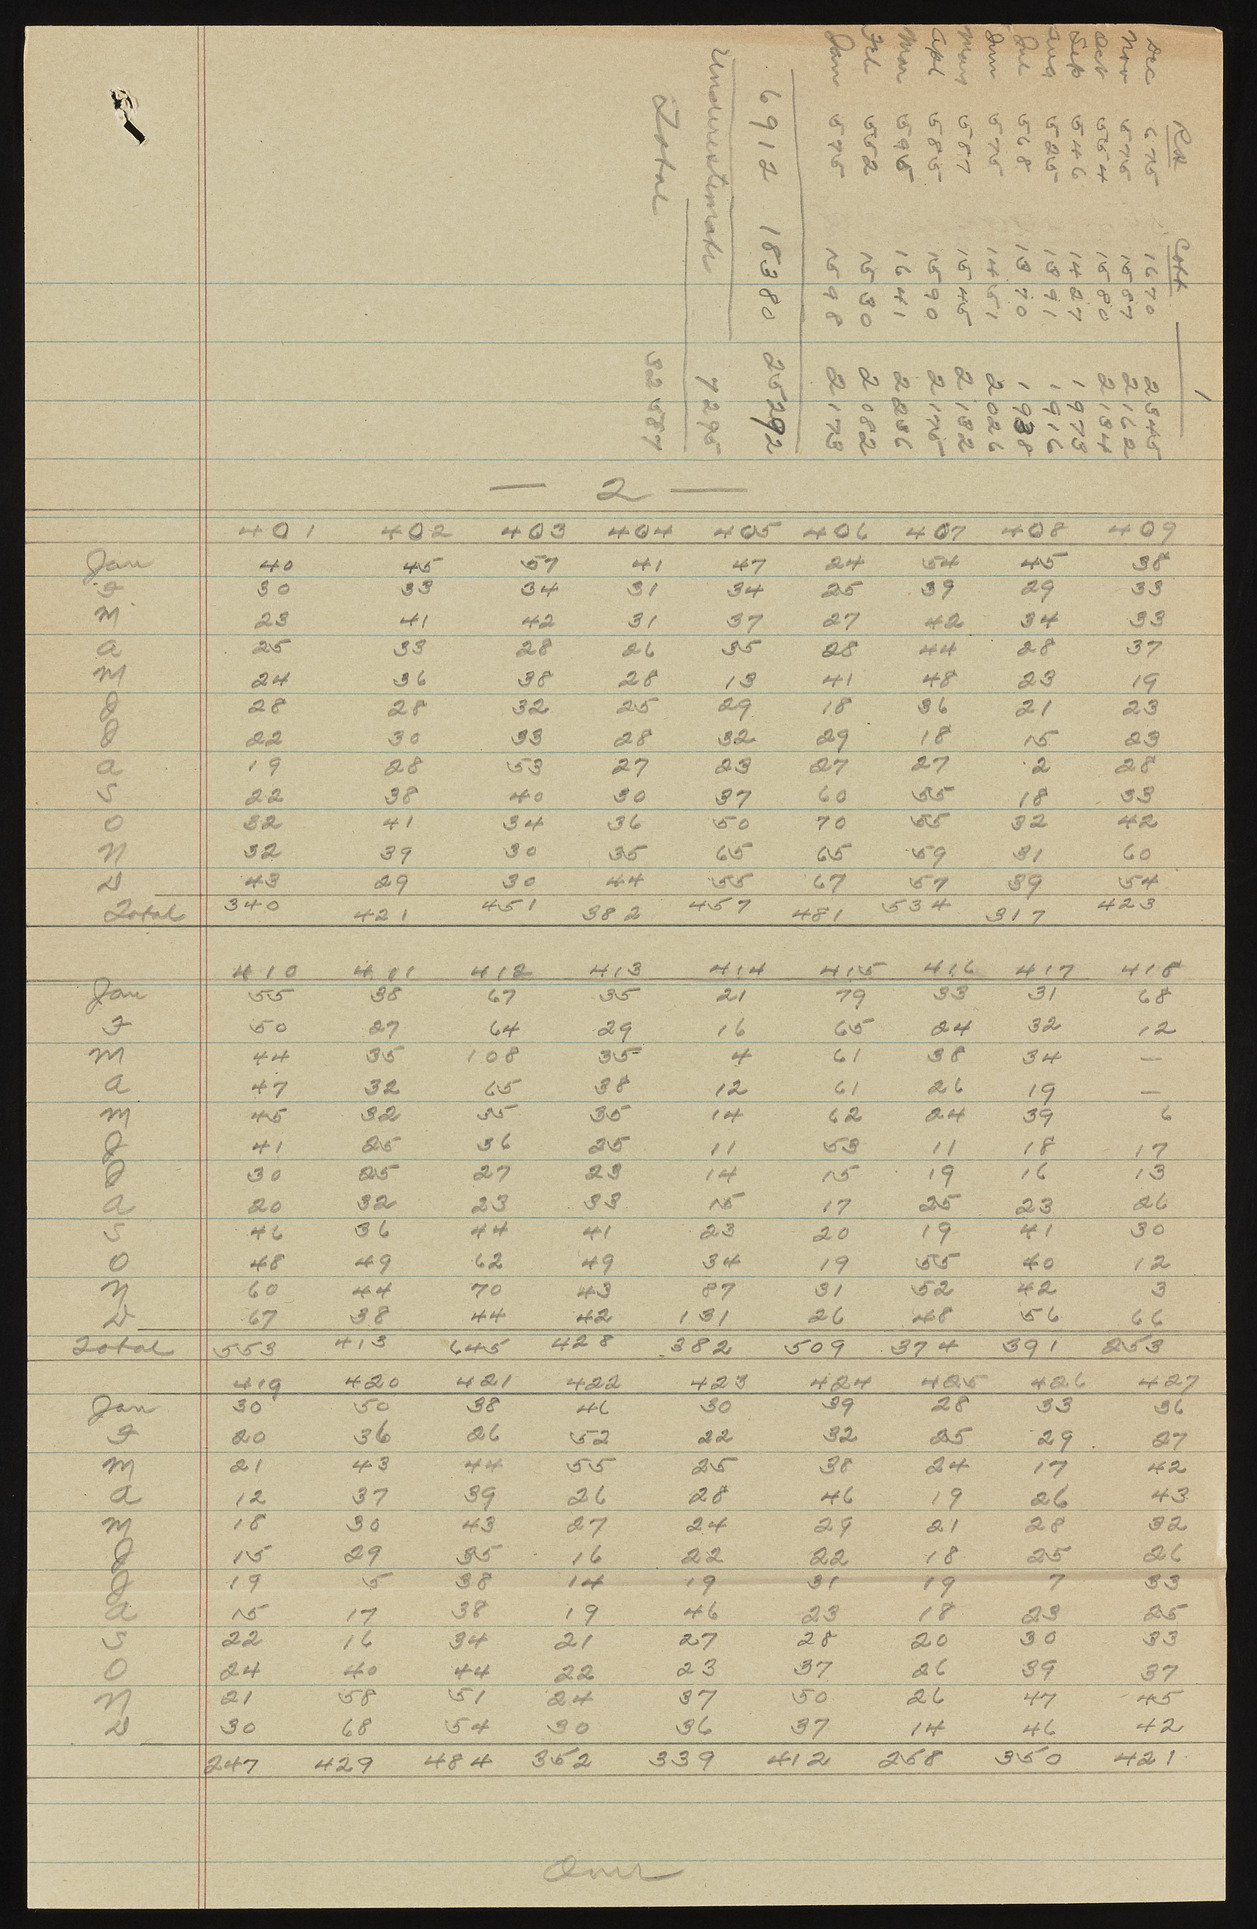 — 1
Rd Cott
Dec 675 1670 2345
Nov 575 1587 2162
Oct 554 1580 2134
Sep 546 1427 1973
Aug 525 1391 1916
Jul 568 1370 1938
Jun 575 1451 2026
May 587 1545 2132
Apl 585 1590 2175
Mar 595 1641 2236
Feb 552 1530 2082
Jan 575 1598 2173
6912 18380 25292
Underestimate 7295
Total 32587
— 2 —
401 402 403 404 405 406 407 408 409
Jan 40 45 57 41 47 24 54 45 38
F 30 33 34 31 34 25 39 29 33
M 23 41 42 31 37 27 42 34 33
A 25 33 28 26 35 28 44 28 37
M 24 36 38 28 13 41 48 23 19
J 28 28 32 25 29 18 36 21 23
J 22 30 33 28 32 29 18 15 23
A 19 28 53 27 23 27 27 2 28
S 22 38 40 30 37 60 55 18 33
O 32 41 34 36 50 70 55 32 42
N 32 39 30 35 65 65 59 31 60
D 43 29 30 44 55 67 57 39 54
Total 340 421 451 382 457 481 534 317 423
410 411 412 413 414 415 416 417 418
Jan 55 38 67 35 21 79 33 31 68
F 50 27 64 29 16 65 24 32 12
M 44 35 108 35 4 61 38 34 —
A 47 32 65 38 12 61 26 19 —
M 45 32 35 35 14 62 24 39 6
J 41 25 36 25 11 53 11 18 17
J 30 25 27 23 14 15 19 16 13
A 20 32 23 33 15 17 25 23 26
S 46 36 44 41 23 20 19 41 30
O 48 49 62 49 34 19 55 40 12
N 60 44 70 43 87 31 52 42 3
D 67 38 44 42 131 26 48 56 66
Total 553 413 645 428 382 509 374 391 253
419 420 421 422 423 424 425 426 427
Jan 30 50 38 46 30 39 28 33 36
F 20 36 26 52 22 32 25 29 27
M 21 43 44 55 25 38 24 17 42
A 12 37 39 26 28 46 19 26 43
M 18 30 43 27 24 29 21 28 32
J 15 29 35 16 22 22 18 25 26
J 19 5 38 14 19 31 19 7 33
A 15 17 38 19 46 23 18 23 25
S 22 16 34 21 27 28 20 30 33
O 24 40 44 22 23 37 26 39 37
N 21 58 51 24 37 50 26 47 45
D 30 68 54 30 36 37 14 46 42
247 429 484 352 339 412 258 350 421
Over